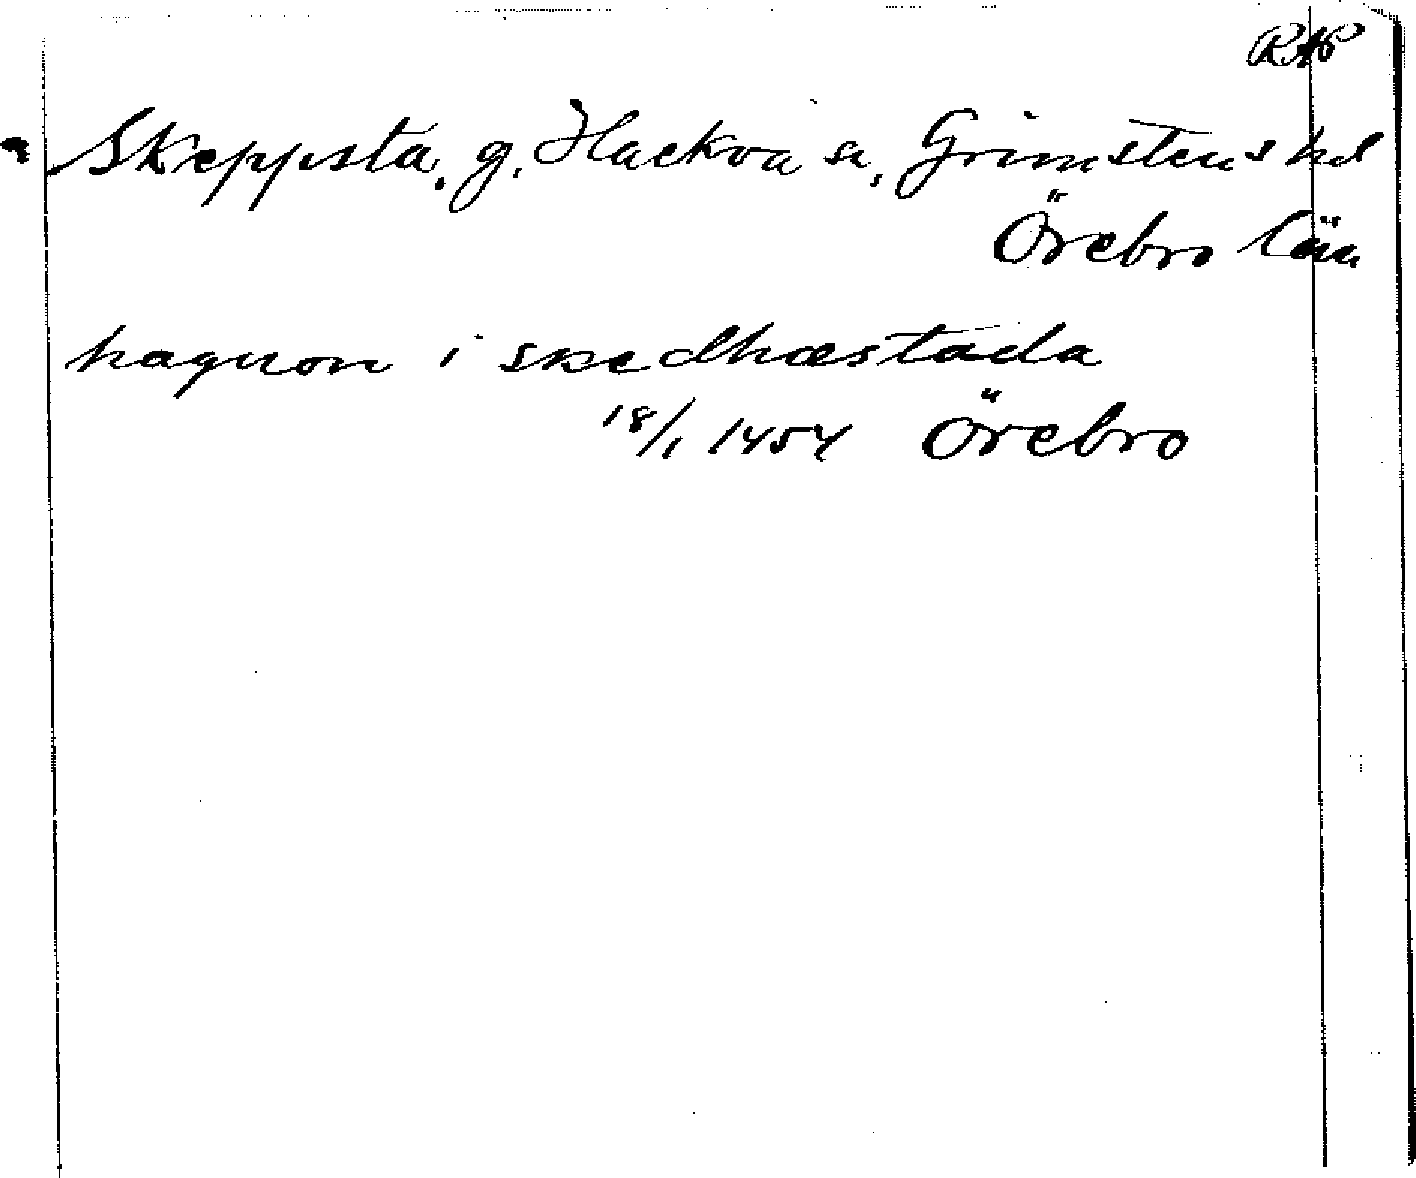 RAP
Skeppsta, g, Hackva sn, Grimstens hd
Örebro län
haquon i skedhæstada
18/1 1454 Örebro